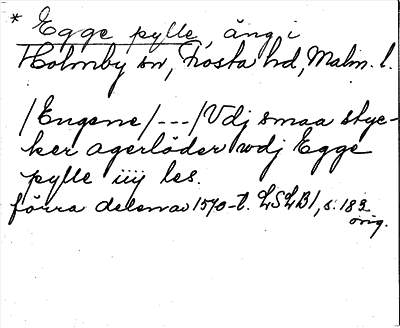 * Egge pylle, äng i
Holmby sn, Frosta hd, Malm. l.
/Engene/---/Vdj smaa styc-
ker agerlöder wdj Egge
pylle iiij les.
förra delen av 1570-t. LSLB1, s. 182
orig.